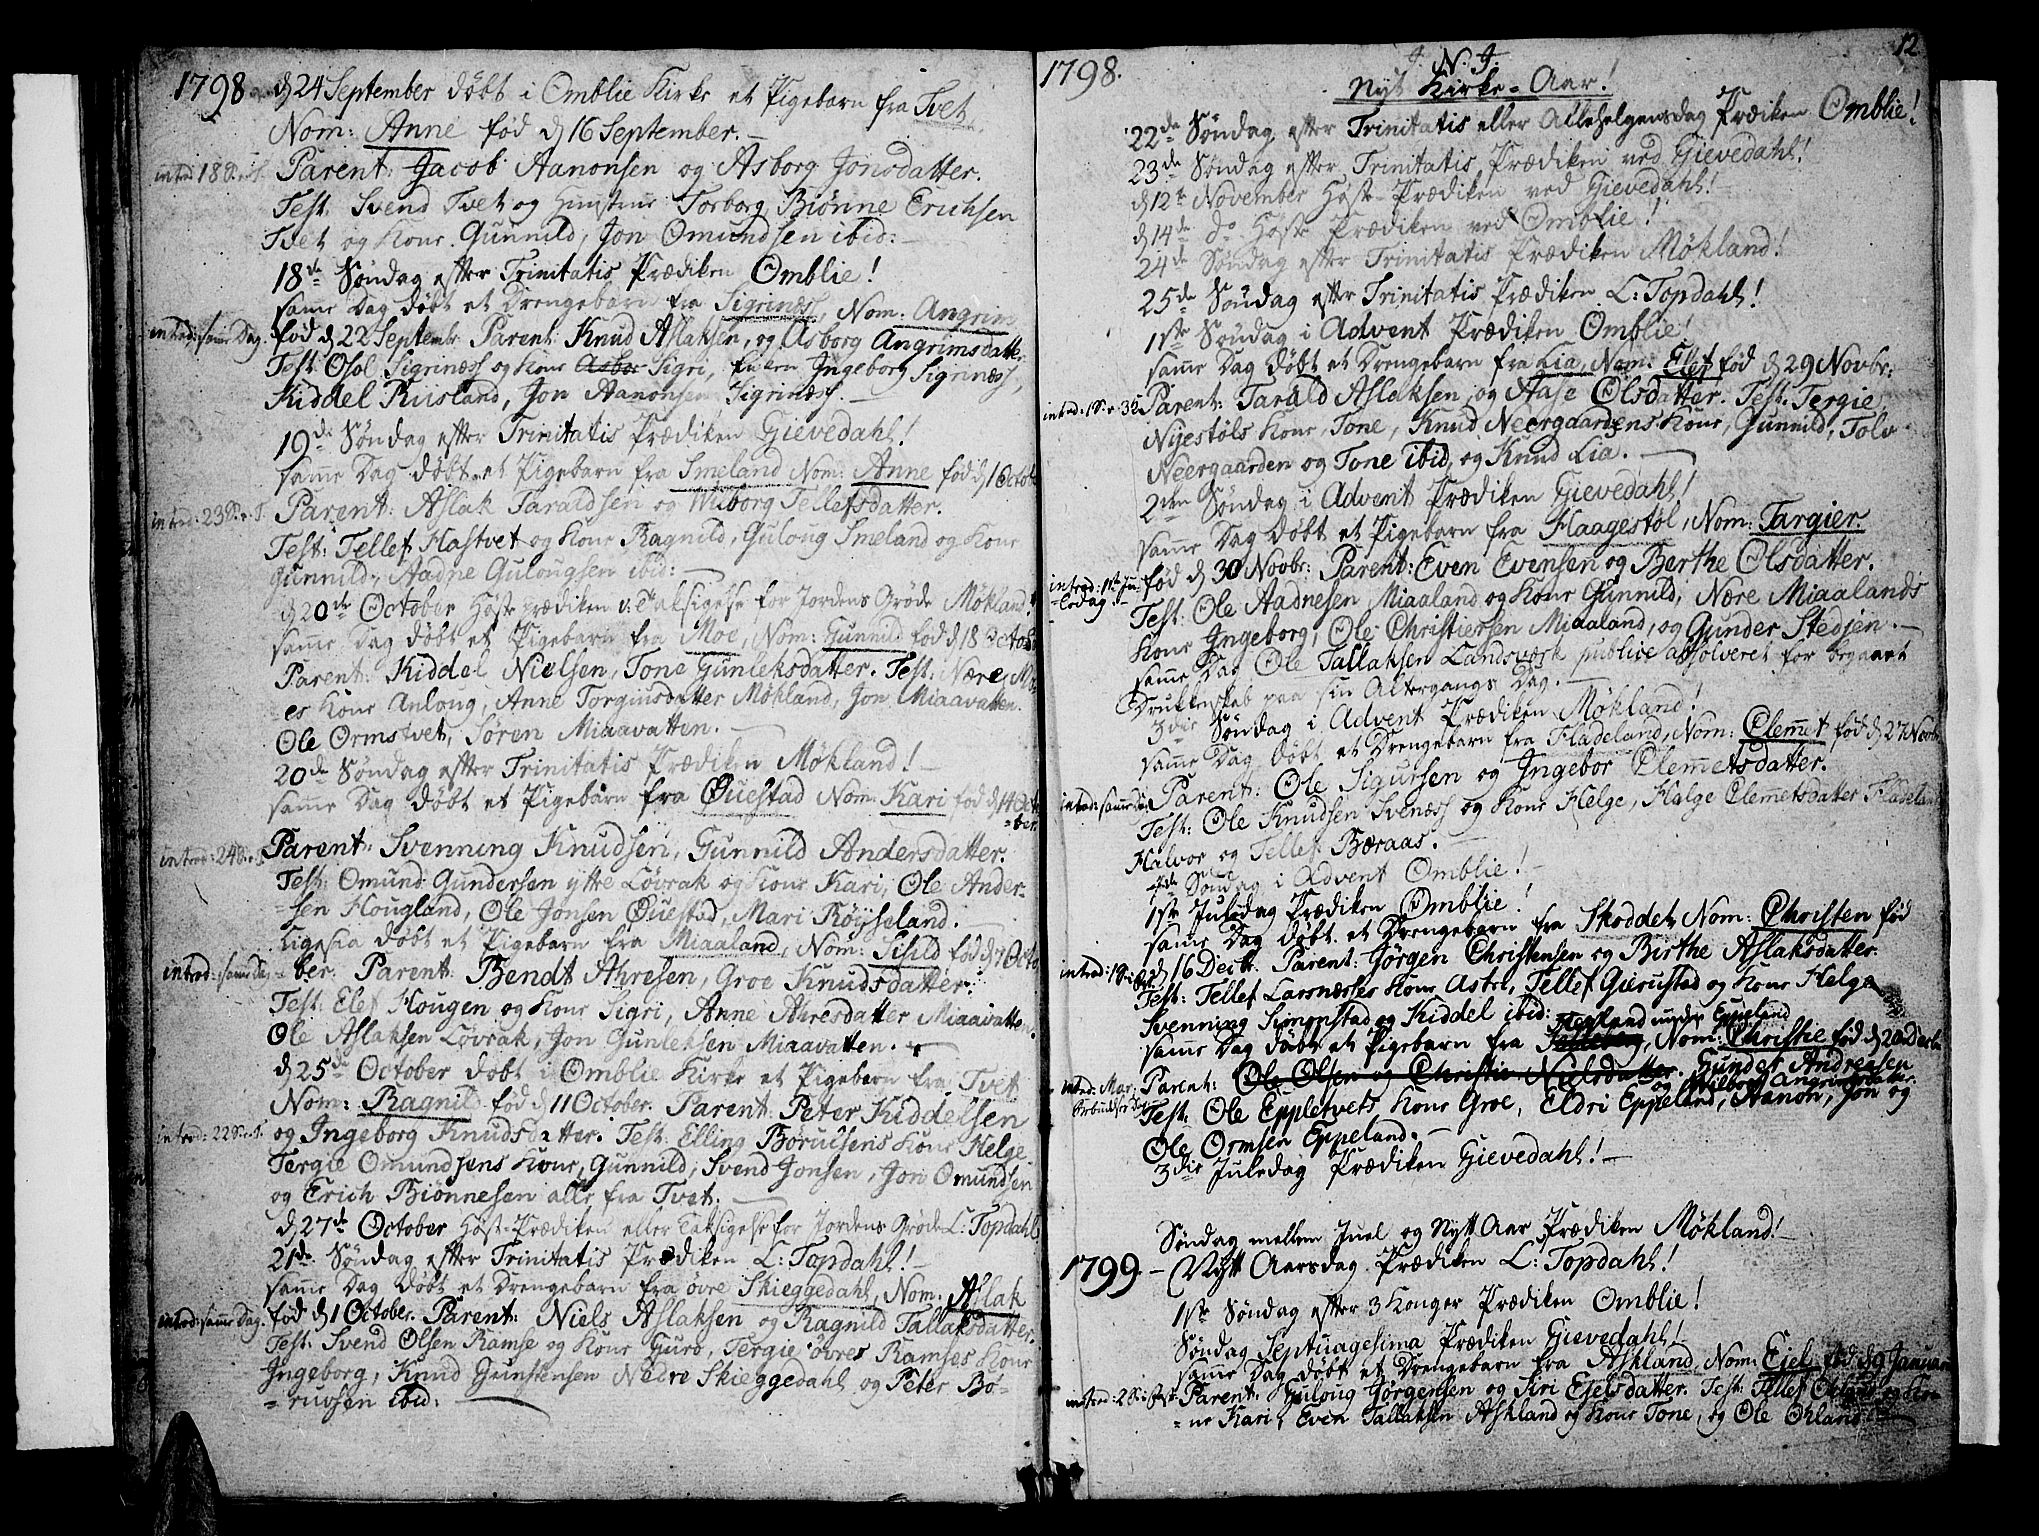 1798. d 24 September döbt i Omblie Kirke et Pigebarn fra Tvet,
Nom: Anne fød d 16 September. —
introd: 18 S. e. T. Parent: Jacob Aanonsen og Asborg Jonsdatter.
Test. Svend Tvet og Torborg, Biönne Erichsen
Tvet og Kone Gunnild, Jon Omundsen ibid: —
18de Søndag efter Trinitatis Prædiken Omblie!
samme Dag döbt et Drengebarn fra Sigrinæss, Nom: Angrim
introd: samme Dag. fød d 22 Septembr Parent: Knud Aslaksen, og Asborg Angrimsdatter
Test: Osol Sigrinæss og Kone Asbor Sigri, Enken Ingeborg Sigrinæss,
Kiddel Riisland, Jon Aanonsen Sigrinæss. —
19de Søndag efter Trinitatis Prædiken Gievedahl!
samme Dag döbt et Pigebarn fra Smeland Nom: Anne fød d 1 Octob
introd: 23 S. e. T. Parent: Aslak Taraldsen og Wiborg Tellefsdatter.
Test: Tellef Hastvet og Kone Ragnild, Guloug Smeland og Kone
Gunnild, Aadne Gulougsen ibid: —
d 20de October Høst-prædiken v: Taksigelse for Jordens Grøde Møkland
samme Dag döbt et Pigebarn fra Moe, Nom: Gunnild fød d 18 Octob
Parent: Kiddel Nielsen, Tone Gunleksdatter. Test: Nære Mo-
es Kone Anloug, Anne Torginsdatter Møkland, Jon Miaavatten.
Ole Ormstvet, Søren Miaavatten. —
20de Søndag efter Trinitatis Prædiken Møkland! —
samme Dag döbt et Pigebarn fra Øuestad Nom: Kari fød d 14 Octo-
=ber.
introd: 24 S. e. T. Parent: Svenning Knudsen, Gunnild Andersdatter.
Test: Omund Gundersen ytre Løvrak og Kone Kari, Ole Ander-
=sen Hougland, Ole Jonsen Øuestad, Mari Röysseland. —
Ligesaa döbt et Pigebarn fra Miaaland, Nom: Sisild fød d 7 Octo
introd: samme Dag =ber. Parent: Bendt Ahresen, Groe Knudsdatter.
Test: Elef Hougen og Kone Sigri, Anne Ahresdatter Miaavatten,
Ole Aslaksen Løvrak, Jon Gunleksen Miaavatten. —
d 25de October döbt i Omblie Kirke et Pigebarn fra Tvet
Nom: Ragnild fød d 11 October. Parent: Peter Kiddelsen
introd: 22 S. e. T. og Ingeborg Knudsdatter. Test: Elling Boruelsens Kone Helge
Tergie Omundsens Kone, Gunnild, Svend Jonsen, Jon Omundsen
og Erich Biönnesen alle fra Tvet. —
d 27de October Høst-Prædiken eller Taksigelse for Jordens Grøde L: Topdahl
21de Søndag efter Trinitatis Prædiken L: Topdahl! —
samme Dag döbt et Drengebarn fra øvre Skieggedahl, Nom: Aslak
introd: samme Dag. fød d 1 October. Parent: Niels Aslaksen og Ragnild Tallaksdatter.
Test: Svend Olsen Ramse og Kone Guro, Tergie øvre Ramses Kone
Ingeborg, Knud Gunstensen Nedre Skieggedahl og Peter Bø-
=ruvsen ibid: —
12
1798. J. N. J.
Nyt Kirke-Aar!
22de Søndag efter Trinitatis eller Allehelgensdag Prædiken Omblie!
23de Søndag efter Trinitatis Prædiken ved Gievedahl!
d 12te November Høst-Prædiken ved Gievedahl! —
d 14de do Høst Prædiken ved Omblie!
24de Søndag efter Trinitatis Prædiken Møkland!
25de Søndag efter Trinitatis Prædiken L: Topdahl!
1ste Søndag i Advent Prædiken Omblie!
samme Dag döbt et Drengebarn fra Lia, Nom: Elef fød d 29 Novbr:
Parent: Tarald Aslaksen, og Aase Olsdatter. Test. Tergie
Nijestöls Kone, Tone, Knud Neergaardens Kone, Gunnild, Tolv
Neergaarden og Tone ibid, og Knud Lia. —
2den Søndag i Advent Prædiken Gievedahl!
samme Dag döbt et Pigebarn fra Haagestøl, Nom: Targier.
fød d 30 Novbr: Parent: Even Evensen og Berthe Olsdatter.
Test: Ole Aadnesen Miaaland og Kone Gunnild, Nære Miaalands
Kone Ingeborg, Ole Christensen Miaaland, og Gunder Stedjen. —
samme Dag Ole Tallaksen Landsværk publice absolveret for begaaet
Drukkenskab paa sin Altergangs Dag. —
3die Søndag i Advent Prædiken Møkland!
samme Dag döbt et Drengebarn fra Fladeland, Nom: Clemmet fød d 27 Novbr
introd: samme Dag Parent: Ole Sigursen og Ingebor Clemmetsdatter.
Test: Ole Knudsen Svenæss og Kone Helge, Halge Clemmetsdatter Fladeland
Halvor og Tellef Bæraas. —
4de Søndag i Advent Omblie! —
1ste Juledag Prædiken Omblie!
samme Dag döbt et Drengebarn fra Skoddet, Nom: Christen fød
d 16 Decbr. Parent: Jørgen Christensen og Birthe Aslaksdatter.
Test: Tellef Larsnæsses Kone Astri, Tellef Gierustad og Kone Helge
Svenning Simonstad og Kiddel ibid:
Heyland under Eppeland
samme Dag döbt et Pigebarn fra, Nom: Christie fød d 20 Decbr
Parent: Ole Olsen og Christie Nielsdatter. Gunder Andresen
og Wilborg Angrimsdatter.
Test: Ole Eppletvets Kone Groe, Eldri Eppeland, Aanon, Jon og
Ole Ormsen Eppeland. —
3die Juledag Prædiken Gievedahl! —
Søndag mellem Juel og Nytt Aar Prædiken Møkland! —
1799. — Nytt Aarsdag Prædiken L: Topdahl!
1ste Søndag efter 3 Konger Prædiken Omblie!
Søndag Septuagesima Prædiken Gievedahl!
samme Dag döbt et Drengebarn fra Askland, Nom: Ejel, fød d 9 Januar
Parent: Guloug Jørgensen og Siri Ejelsdatter. Test: Tellef
=ne Kari, Even Tallaksen Askland og Kone Tone, og Ole